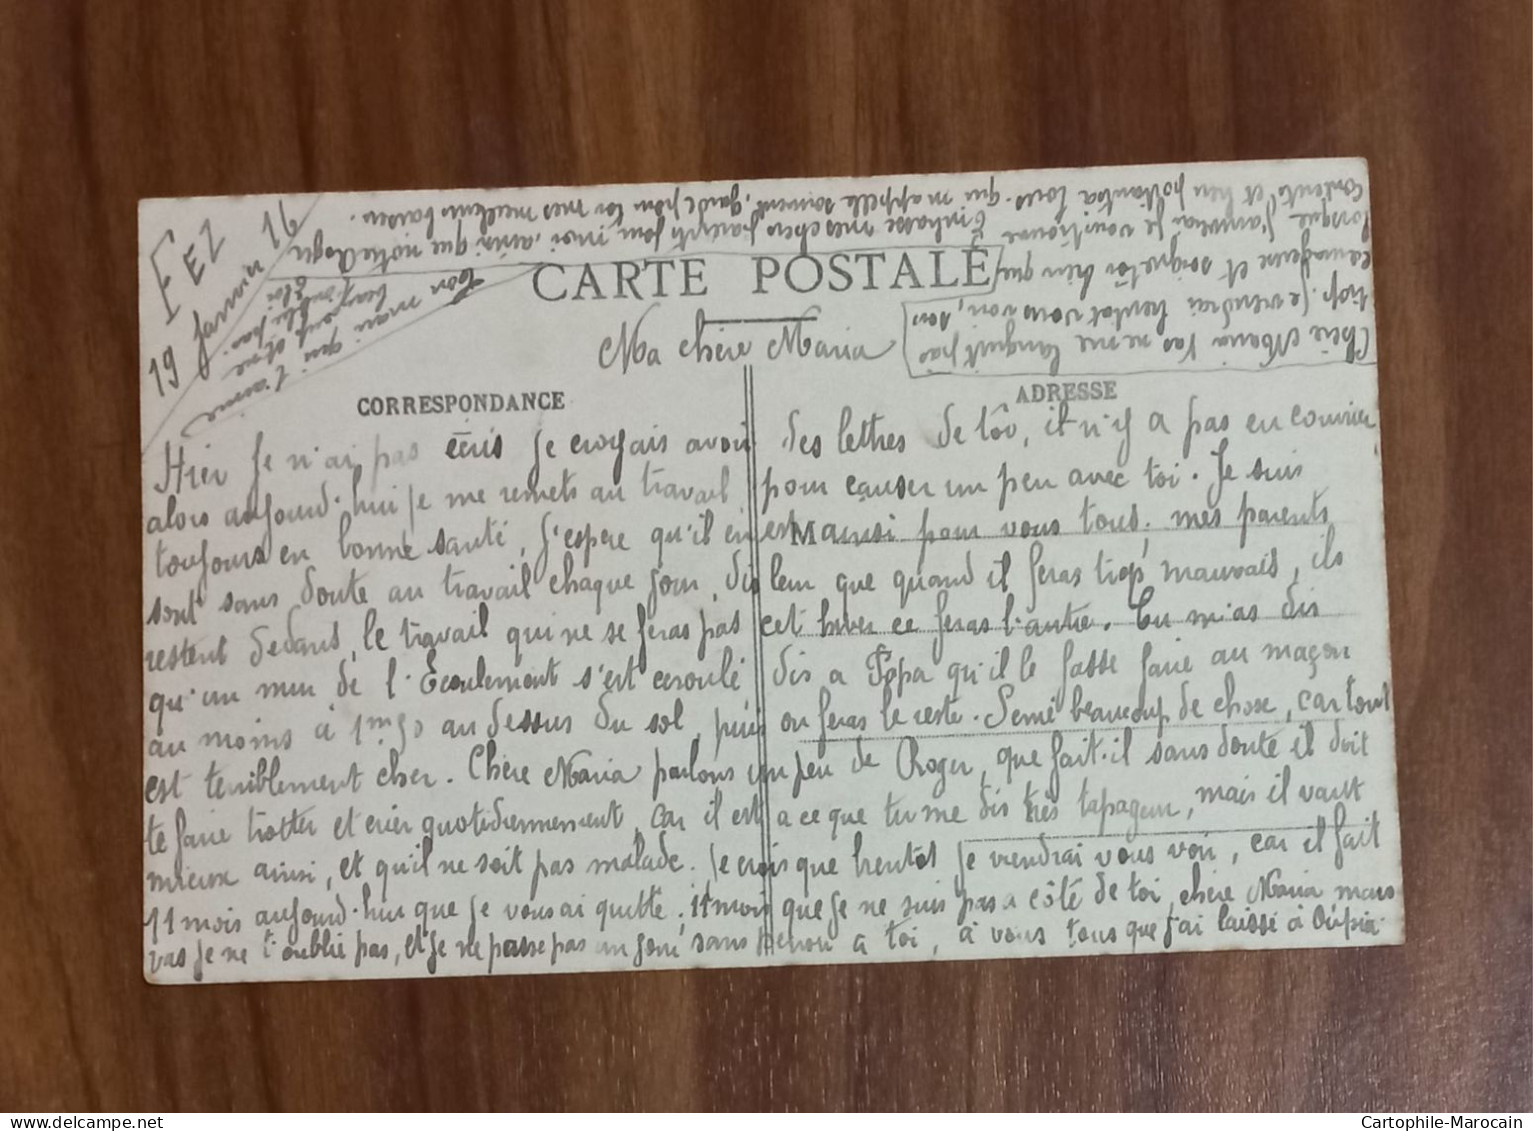 FEZ
19 Janvier 16
CARTE POSTALE
Ma chère Maria
CORRESPONDANCE
ADRESSE
Hier je n'ai pas écris je croyais avoir des lettres de toi, il n'y a pas eu courrier
alors aujourd'hui je me remets au travail pour causer un peu avec toi. Je suis
toujours en bonne santé, j'espere qu'il en est ainsi pour vous tous. mes parents
sont sans doute au travail chaque jour, dis leur que quand il feras trop mauvais, ils
restent dedans, le travail qui ne se feras pas cet hiver ce feras l'autre. Tu m'as dis
qu'un mur de l'Ecoulement s'est ceroulé dis a Papa qu'il le fasse faire au maçon
au moins à 1m50 au dessus du sol, puis on feras le reste. Semé beaucoup de chose, car tout
est terriblement cher. Chère Maria parlons un peu de Roger, que fait-il sans doute il doit
te faire trotter et crier quotidiennement, car il est a ce que tu me dis très tapageur, mais il vaut
mieux ainsi, et qu'il ne soit pas malade. Je crois que bientot je viendrai vous voir, car il fait
11 mois aujourd'hui que je vous ai quitté, 11 mois que je ne suis pas a côté de toi, chère Maria, mais
vas je ne t'oublie pas, et je ne passe pas un jour sans penser a toi, à vous tous que j'ai laissé à
Chère Maria vas ne me languit pas
trop. je viendrai bientot vous voir, sois
courageuse et soigne toi bien que
lorsque j'arriverai je vous trouve
contente et bien portante
Embrasse mes chers parents pour moi, ainsi que notre Roger
qui m'appelle souvent, garde pour toi mes meilleurs baisers.
Ton mari
qui t'aime
beaucoup et ne
t'oublie pas.